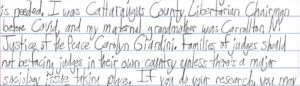 is needed. I was Cattaraugus County Libertarian Chairman
before Covid, and my maternal grandmother was Carrollton NY
Justice of the Peace Carolyn Giardini. Families of judges should
not be facing judges in their own country unless there's a major
sociology issue taking place. If you do your research, you may